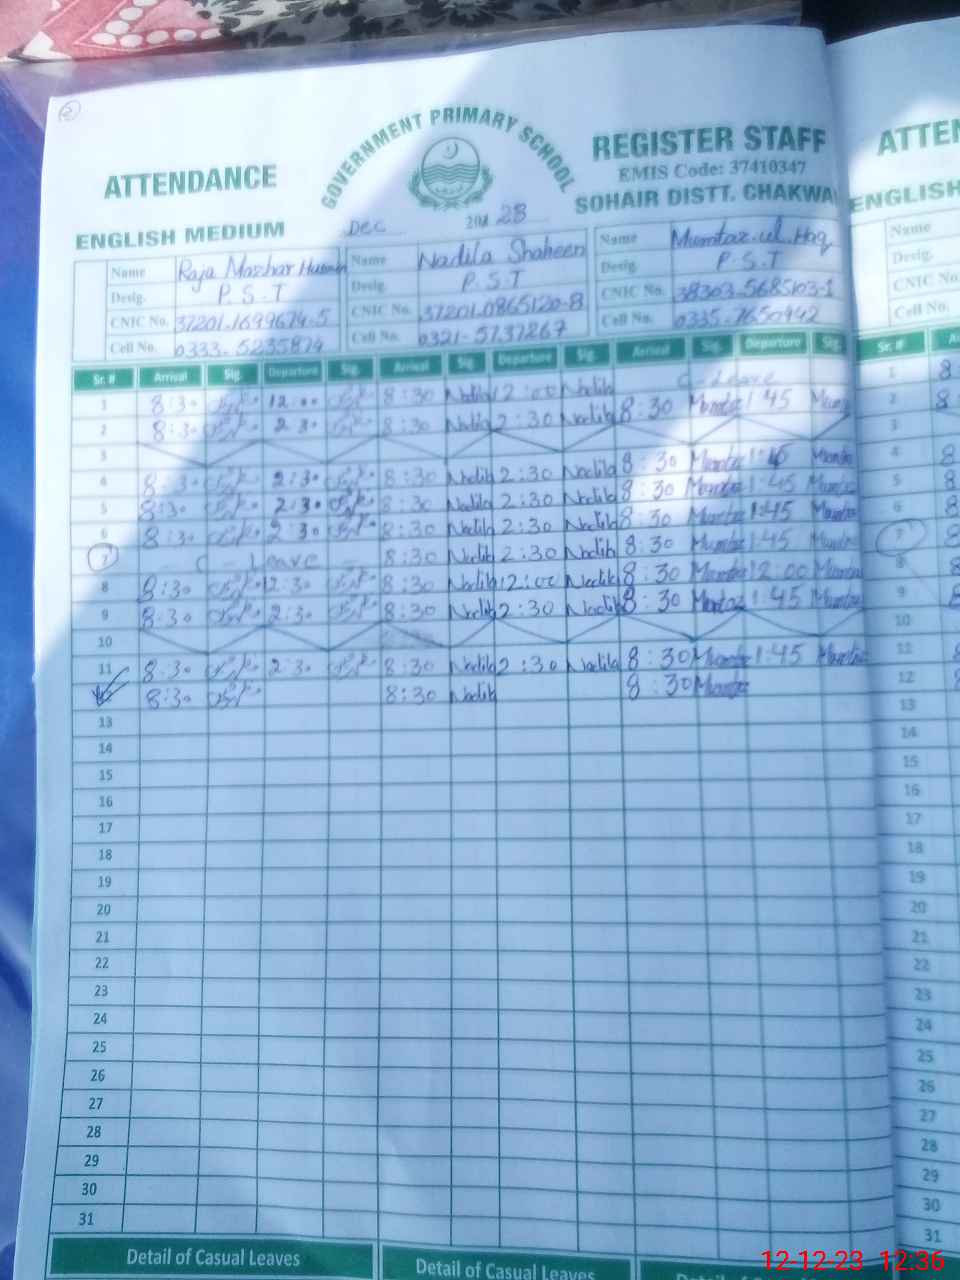 2
GOVERNMENT PRIMARY SCHOOL
ATTENDANCE
REGISTER STAFF
EMIS Code: 37410347
SOHAIR DISTT. CHAKWA
ENGLISH MEDIUM Dec 201 23
Name Raja Mazhar Hussain Name Nadila Shaheen Name Mumtaz-ul-Haq
Desig. P.S.T Desig. P.S.T Desig. P.S.T
CNIC No. 37201-1699674-5 CNIC No. 37201-0865120-8 CNIC No. 38303-5685103-1
Cell No. 0333-5235874 Cell No. 0321-5737267 Cell No. 0335-7650942
Sr. # Arrival Sig. Departure Sig. Arrival Sig. Departure Sig. Arrival Sig. Departure Sig.
1 8:30 12:00 8:30 Nadila 12:00 Nadila C-Leave
2 8:30 2:30 8:30 Nadila 2:30 Nadila 8:30 Mumtaz 1:45 Mumtaz
3
4 8:30 2:30 8:30 Nadila 2:30 Nadila 8:30 Mumtaz 1:45 Mumtaz
5 8:30 2:30 8:30 Nadila 2:30 Nadila 8:30 Mumtaz 1:45 Mumtaz
6 8:30 2:30 8:30 Nadila 2:30 Nadila 8:30 Mumtaz 1:45 Mumtaz
7 C-Leave 8:30 Nadila 2:30 Nadila 8:30 Mumtaz 1:45 Mumtaz
8 8:30 12:30 8:30 Nadila 12:00 Nadila 8:30 Mumtaz 12:00 Mumtaz
9 8:30 2:30 8:30 Nadila 2:30 Nadila 8:30 Mumtaz 1:45 Mumtaz
10
11 8:30 2:30 8:30 Nadila 2:30 Nadila 8:30 Mumtaz 1:45 Mumtaz
8:30 8:30 Nadila 8:30 Mumtaz
13
14
15
16
17
18
19
20
21
22
23
24
25
26
27
28
29
30
31
Detail of Casual Leaves Detail of Casual Leaves
ATTEN
ENGLISH
Name
Desig.
CNIC No.
Cell No.
Sr. #
1
2
3
4
5
6
7
8
9
10
11
12
13
14
15
16
17
18
19
20
21
22
23
24
25
26
27
28
29
30
31
12-12-23 12:36